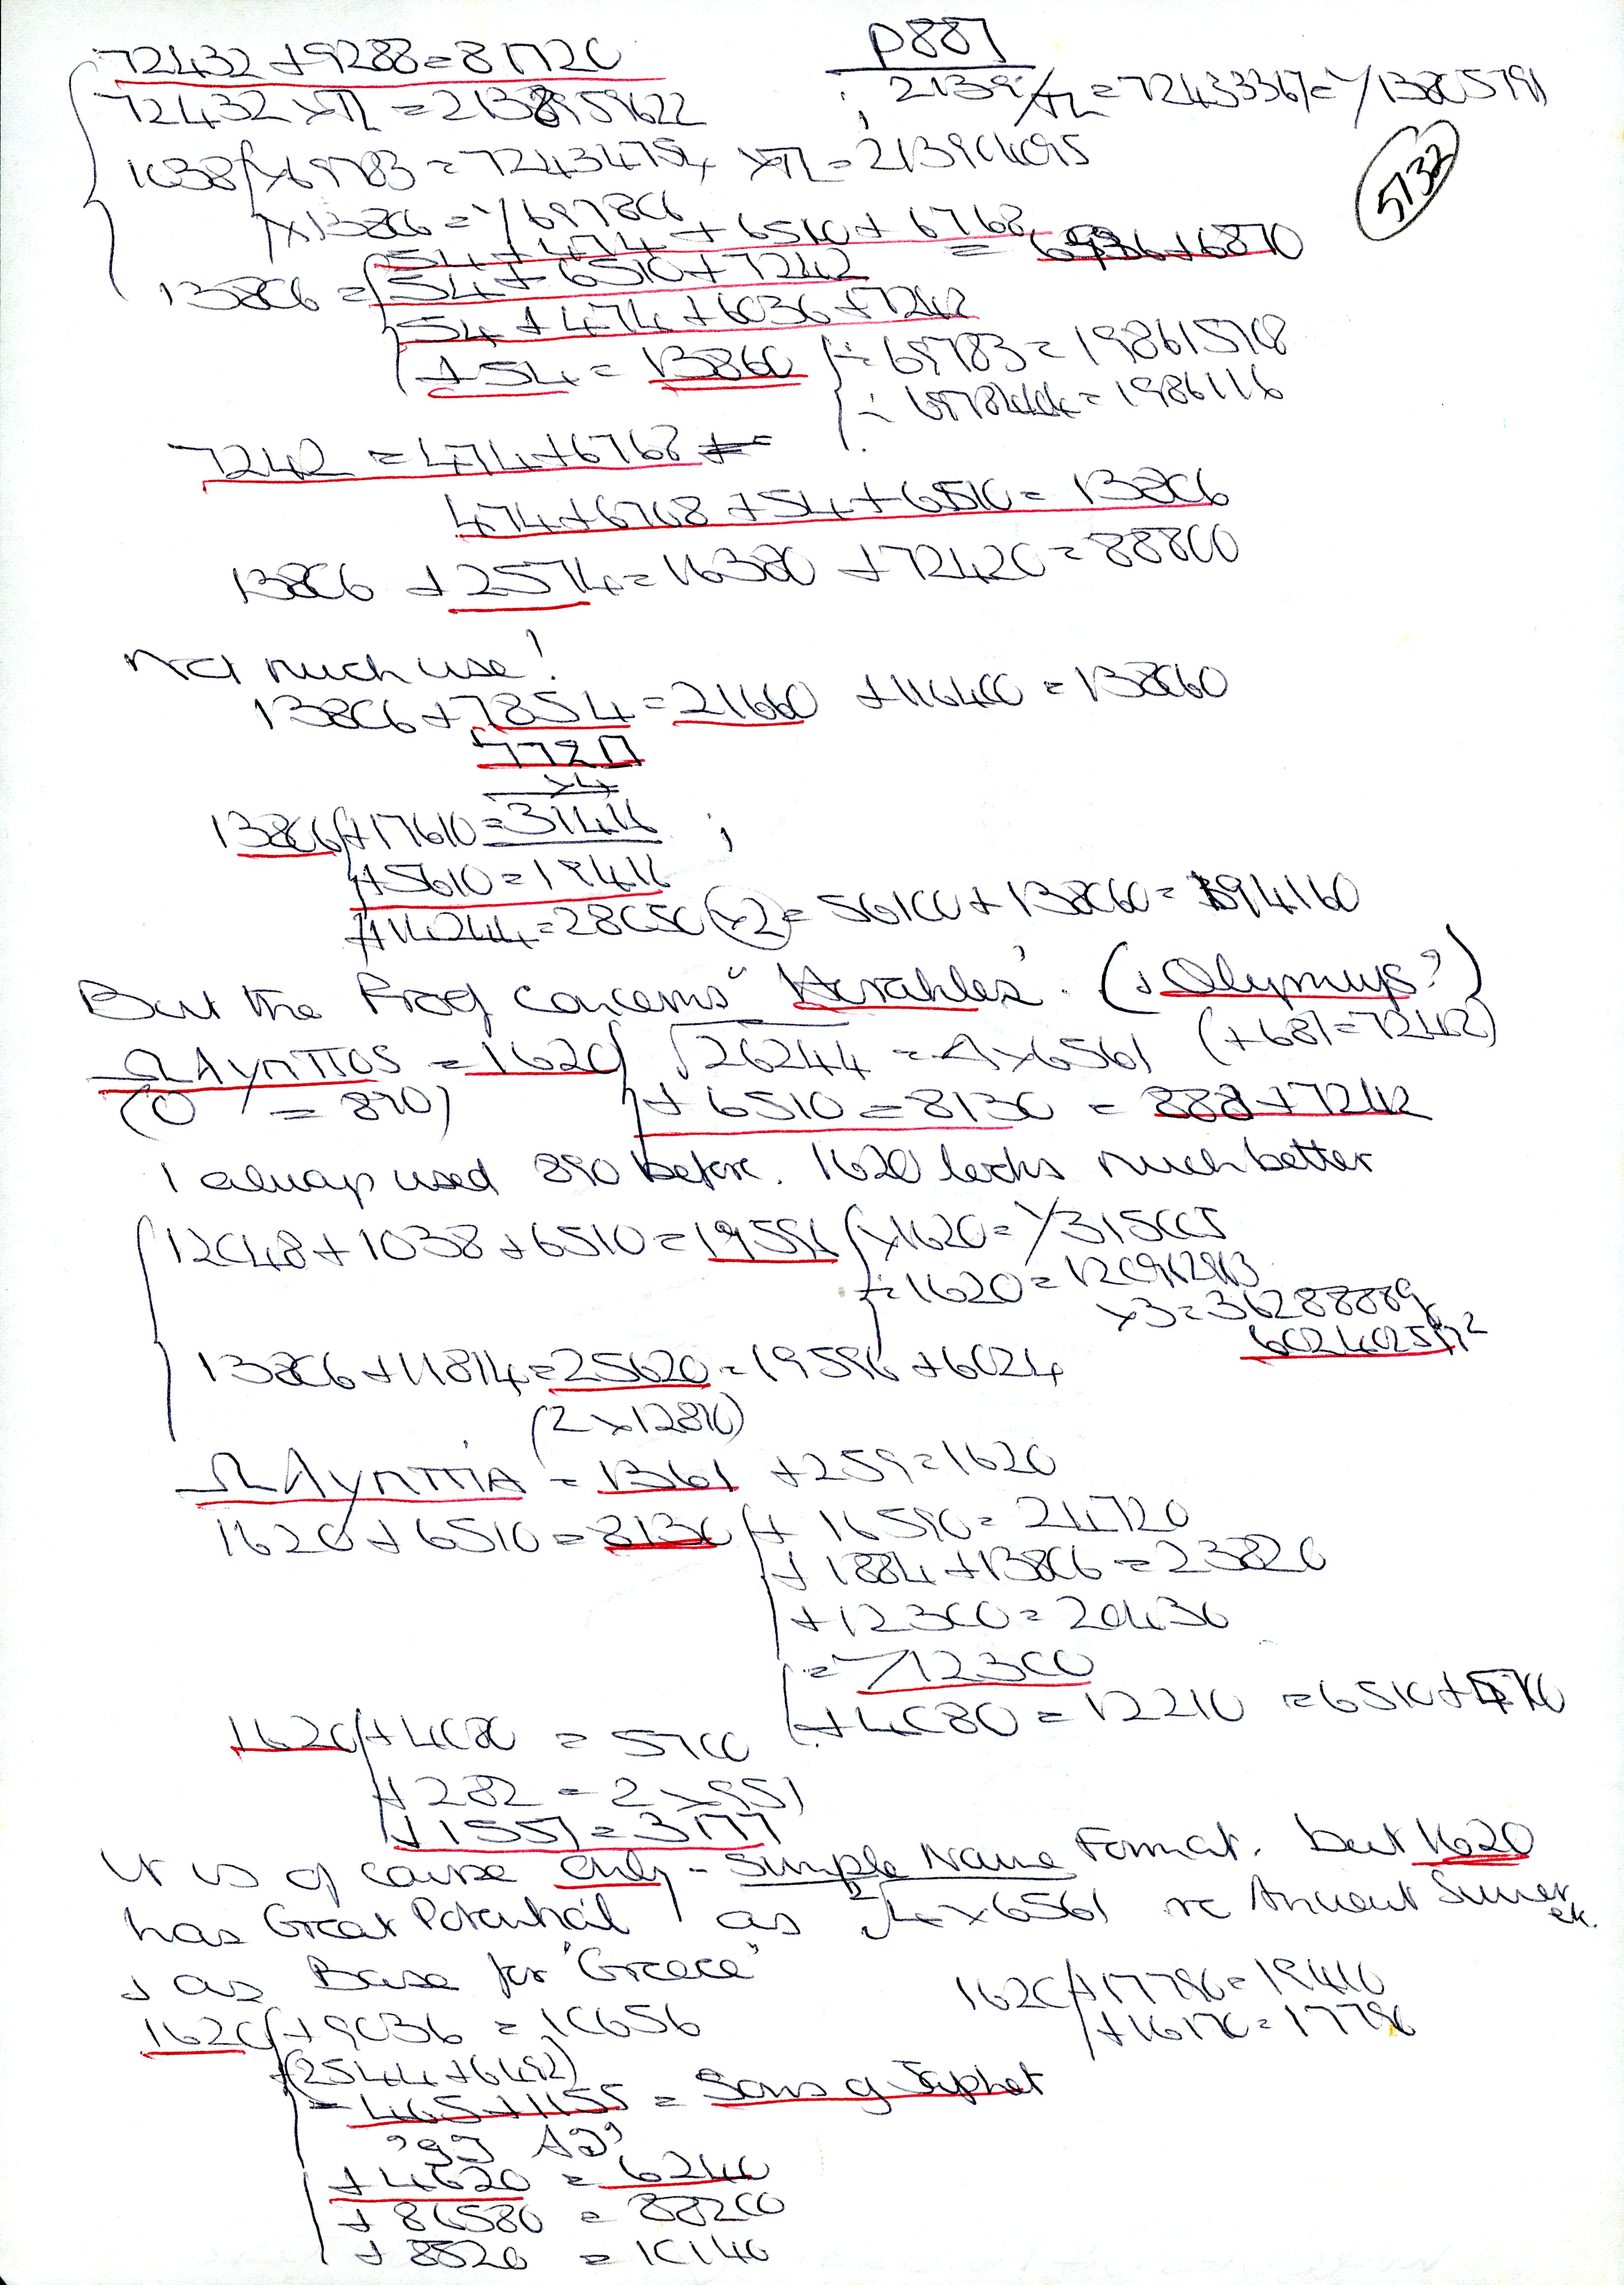 p887
72432 + 9288 = 81720
72432 × π = 2138959622
; 2139 / π = 72433367 = √13805791
5732
1038 × 69783 = 72434754 × π = 213904095
× 13806 = √697806
54 + 474 + 6510 + 6768 = 6936 + 6870
13806 = 54 + 6510 + 7242
54 + 474 + 6036 + 7242
+ 54 = 13860 ÷ 69783 = 198615708
÷ 6978444 = 1986116
7242 = 474 + 6768
474 + 6768 + 54 + 6510 = 13806
13806 + 2574 = 16380 + 72420 = 88800
Not much use!
13806 + 7854 = 21660 + 116400 = 138060
× 4
13806 + 17610 = 31416 ;
+ 5610 = 19416
+ 14244 = 28050 (×2) = 56100 + 138060 = 194160
But the Prog concerns "Herakles". (+ Olympus?)
ΩΛΥΜΠΟS = 1620 √26244 = 4 × 6561 (+ 681 = 7242)
(O = 890) + 6510 = 8130 = 888 + 7242
I always used 890 before. 1620 looks much better
12048 + 1038 + 6510 = 19596 × 1620 = √315005
÷ 1620 = 120962963
× 3 = 36288889
602402517²
13806 + 11814 = 25620 = 19596 + 6024
(2 × 12810)
ΩΛΥΜΠΙΑ = 1361 + 259 = 1620
1620 + 6510 = 8130 + 16590 = 24720
+ 1884 + 13806 = 23820
+ 12300 = 20430
= 712300
+ 4080 = 12210 = 6510 + 5700
1620 + 4080 = 5700
+ 282 = 2 × 951
+ 1557 = 3177
It is of course only - Simple Name Format. but 1620
has Great Potential as √4 × 6561 re Ancient Sumer etc.
+ as Base for "Greece"
1620 + 17796 = 19416
+ 16176 = 17796
1620 + 9036 = 10656
(2544 + 6492)
= 465 + 1155 = Sons of Japhet
+ 4620 = 6240
+ 86580 = 88200
+ 8520 = 10140